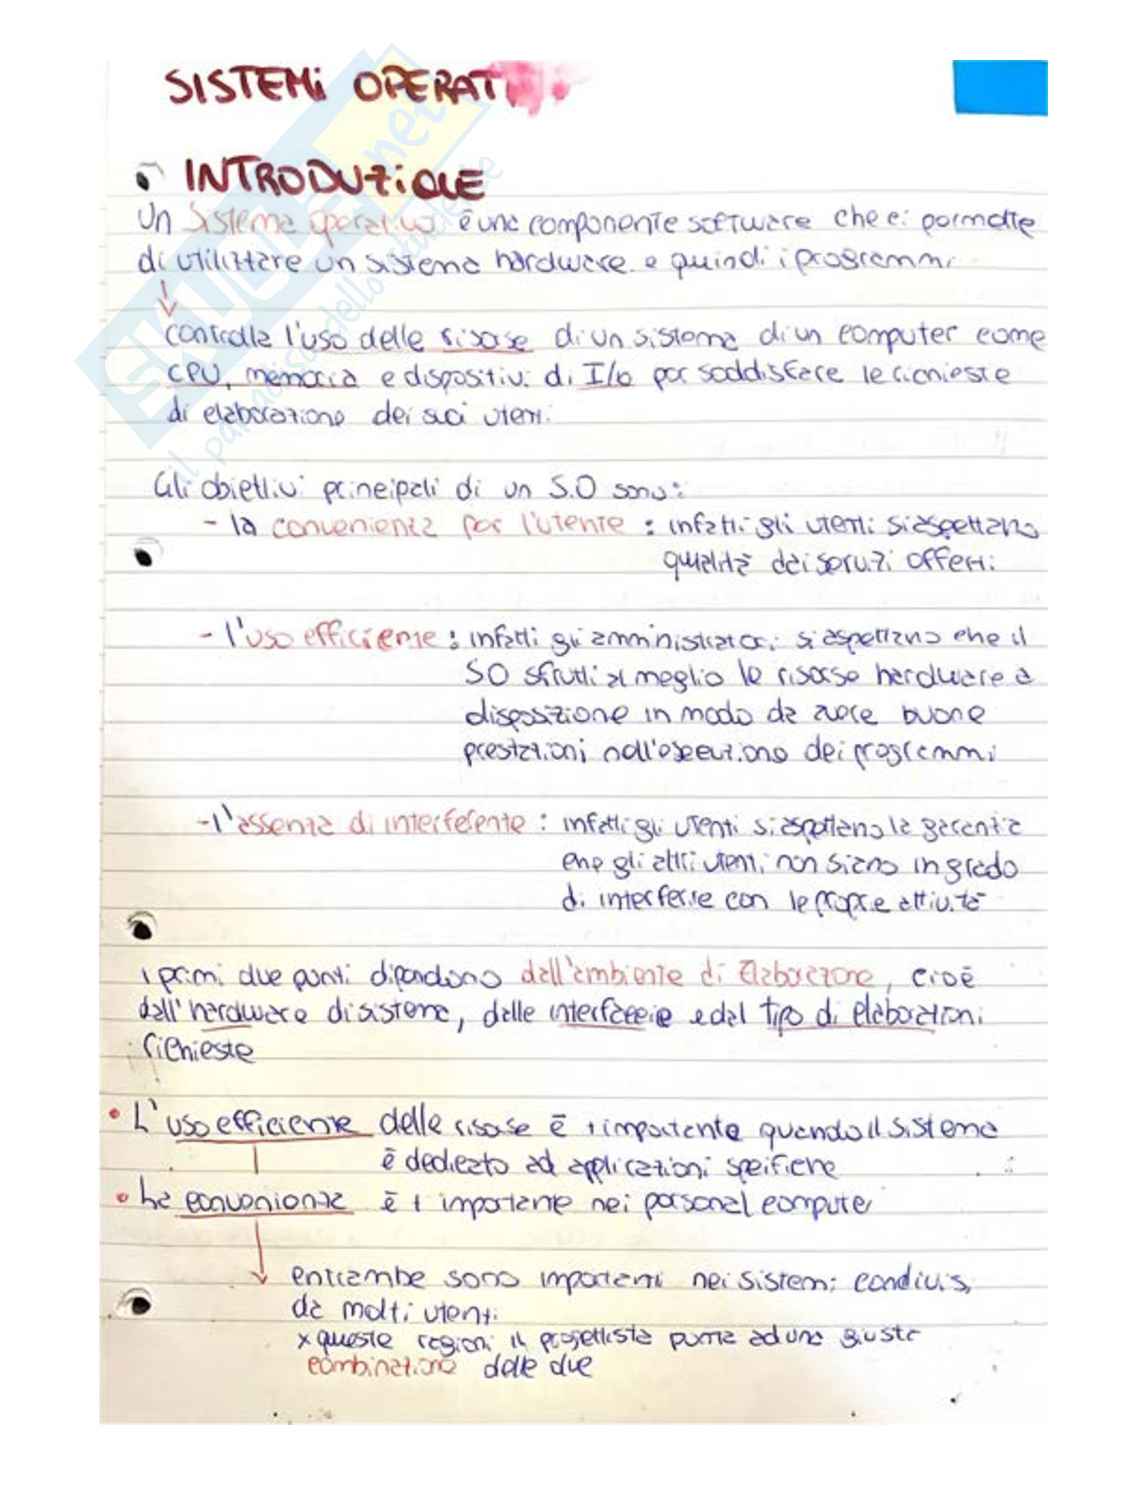 SISTEMi OPERATI
INTRODUZiONE
Un Sistema operativo è una componente software che ci permette
di utilizzare un sistema hardware e quindi i programmi
controlla l'uso delle risorse di un sistema di un computer come
CPU, memoria e dispositivi di I/O per soddisfare le richieste
di elaborazione dei suoi utenti.
Gli obiettivi principali di un S.O sono:
- la convenienza per l'utente : infatti gli utenti si aspettano
qualità dei servizi offerti.
- l'uso efficiente : infatti gli amministratori si aspettano che il
SO sfrutti al meglio le risorse hardware a
disposizione in modo da avere buone
prestazioni nell'esecuzione dei programmi
- l'assenza di interferenze : infatti gli utenti si aspettano la garanzia
che gli altri utenti non siano in grado
di interferire con le proprie attività
i primi due punti dipendono dall'ambiente di Elaborazione, cioè
dall'hardware di sistema, dalle interfaccie e dal tipo di elaborazioni
richieste
• L'uso efficiente delle risorse è + importante quando il sistema
è dedicato ad applicazioni speifiche
• La convenienza è + importante nei personal computer
entrambe sono importanti nei sistemi condivisi
da molti utenti.
x queste ragioni il progettista punta ad una giusta
combinazione delle due
SKUOLA.net
il paradiso dello studente